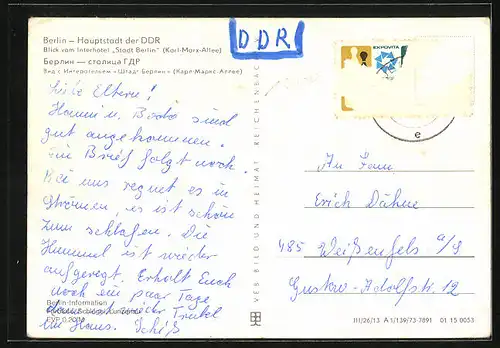 Berlin – Hauptstadt der DDR
Blick vom Interhotel „Stadt Berlin“ (Karl-Marx-Allee)
Берлин — столица ГДР
Вид с Интеротелем «Штадт Берлин» (Карл-Маркс-Аллее)
DDR
EXPOVITA
Liebe Eltern!
Hanni u. Bodo sind
gut angekommen.
Ein Brief folgt noch.
Bei uns regnet es in
Strömen, es ist schön
zum schlafen. Die
ist wieder
aufgeregt. Erholt Euch
noch ein paar Tage
dann ist wieder Trubel
im Haus.
Berlin-Information
EVP 0,20 M
VEB BILD UND HEIMAT REICHENBACH
e
An Fam.
Erich Dähne
485 Weißenfels a/S
Gustav-Adolfstr. 12
III/26/13 A 1/139/73-7891 01 15 0053